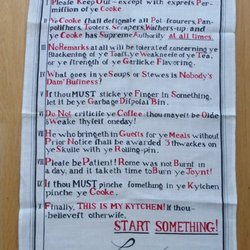 I Pleaſe Keep Out - except with expreſs Per-
miſſion of ye Cooke
Ye Cooke ſhall deſignate all Pot-ſcourers, Pan-
poliſhers, Tooters, Scrapers, Waſhers-up and
ye Cooke has Supreme Authority at all times.
No Remarks at all will be tolerated concerning ye
Blackening of ye Toaſt, ye Weakneſſe of ye Tea,
or ye ſtrength of ye Garlicke Flavoring.
What goes in ye Soups or Stewes is Nobody's
Dam' Buſineſs!
If thou MUST sticke ye Finger in Something,
let it be ye Garbage Diſpoſal Bin.
Do Not criticiſe ye Coffee thou mayeſt be Olde
& Weake thyſelf oneday!
He who bringeth in Gueſts for ye Meales without
Prior Notice ſhall be awarded 3 thwackes on
ye Skulle with ye Rolling-pin.
Pleaſe be Patient! Rome was not Burnt in
a day, and it taketh time to Burn ye Joynt!
If thou MUST pinche ſomething in ye Kytchen
pinche ye Cooke.
Finally, THIS IS MY KITCHEN! If thou
believeſt otherwiſe,
START SOMETHING!